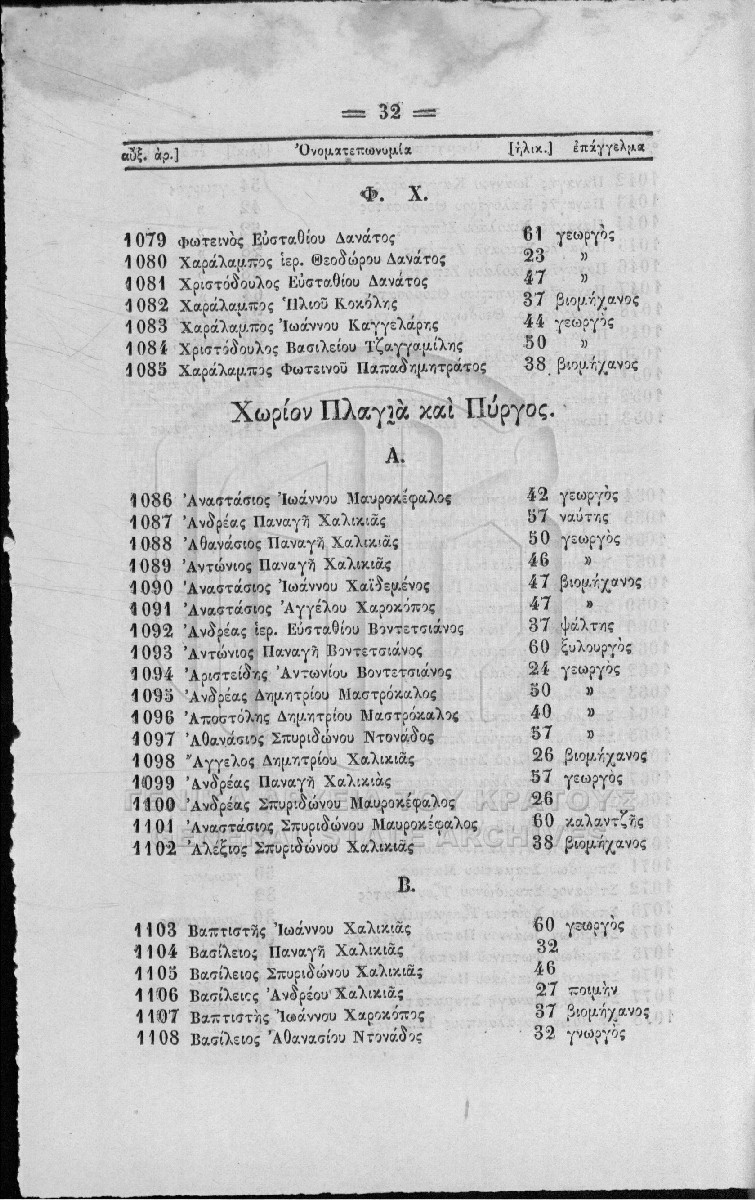 = 32 =
αὐξ. ἀρ.] Ὀνοματεπωνυμία [ἡλικ.] ἐπάγγελμα
Φ. Χ.
1079 Φωτεινὸς Εὐσταθίου Δανάτος 61 γεωργὸς
1080 Χαράλαμπος ἱερ. Θεοδώρου Δανάτος 23 »
1081 Χριστόδουλος Εὐσταθίου Δανάτος 47 »
1082 Χαράλαμπος Ἡλιοῦ Κοκόλης 37 βιομήχανος
1083 Χαράλαμπος Ἰωάννου Καγγελάρης 44 γεωργὸς
1084 Χριστόδουλος Βασιλείου Τζαγγαμίλης 50 »
1085 Χαράλαμπος Φωτεινοῦ Παπαδημητράτος 38 βιομήχανος
Χωρίον Πλαγιὰ καὶ Πύργος.
Α.
1086 Ἀναστάσιος Ἰωάννου Μαυροκέφαλος 42 γεωργὸς
1087 Ἀνδρέας Παναγῆ Χαλικιᾶς 57 ναύτης
1088 Ἀθανάσιος Παναγῆ Χαλικιᾶς 50 γεωργὸς
1089 Ἀντώνιος Παναγῆ Χαλικιᾶς 46 »
1090 Ἀναστάσιος Ἰωάννου Χαϊδεμένος 47 βιομήχανος
1091 Ἀναστάσιος Ἀγγέλου Χαροκόπος 47 »
1092 Ἀνδρέας ἱερ. Εὐσταθίου Βοντετσιάνος 37 ψάλτης
1093 Ἀντώνιος Παναγῆ Βοντετσιάνος 60 ξυλουργὸς
1094 Ἀριστείδης Ἀντωνίου Βοντετσιάνος 24 γεωργὸς
1095 Ἀνδρέας Δημητρίου Μαστρόκαλος 50 »
1096 Ἀποστόλης Δημητρίου Μαστρόκαλος 40 »
1097 Ἀθανάσιος Σπυριδώνου Ντονάδος 57 »
1098 Ἄγγελος Δημητρίου Χαλικιᾶς 26 βιομήχανος
1099 Ἀνδρέας Παναγῆ Χαλικιᾶς 57 γεωργὸς
1100 Ἀνδρέας Σπυριδώνου Μαυροκέφαλος 26
1101 Ἀναστάσιος Σπυριδώνου Μαυροκέφαλος 60 καλαντζῆς
1102 Ἀλέξιος Σπυριδώνου Χαλικιᾶς 38 βιομήχανος
Β.
1103 Βαπτιστῆς Ἰωάννου Χαλικιᾶς 60 γεωργὸς
1104 Βασίλειος Παναγῆ Χαλικιᾶς 32
1105 Βασίλειος Σπυριδώνου Χαλικιᾶς 46
1106 Βασίλειος Ἀνδρέου Χαλικιᾶς 27 ποιμὴν
1107 Βαπτιστὴς Ἰωάννου Χαροκόπος 37 βιομήχανος
1108 Βασίλειος Ἀθανασίου Ντονάδος 32 γνωργὸς